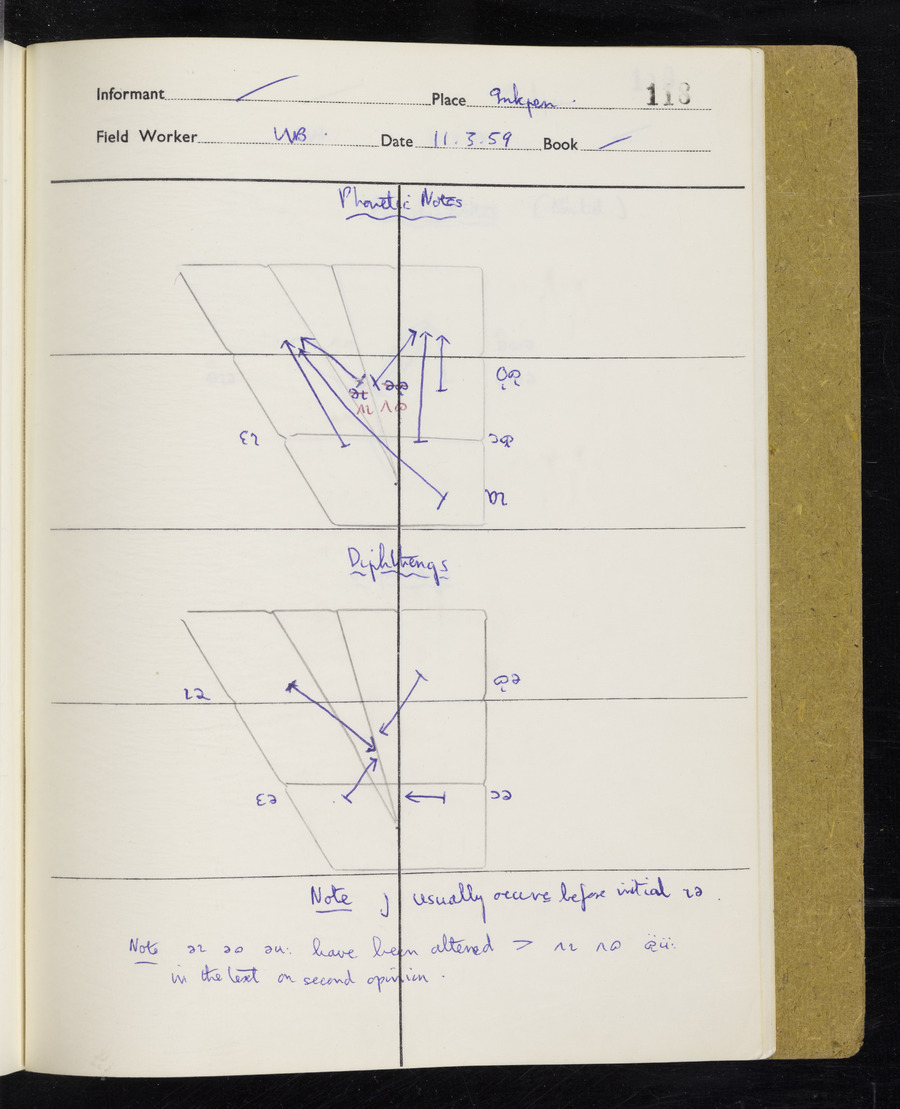 Informant / Place Inkpen . 118
Field Worker WB . Date 11.3.59 Book /
Phonetic Notes
oʊ
əɪ əʊ
ʌɪ ʌʊ
ɛɪ ɔʊ
ɒɪ
Diphthongs
ɪə ʊə
ɛə ɔə
Note j usually occurs before initial ɪə .
Note əɪ əʊ əu: have been altered > ʌɪ ʌʊ
in the text on second opinion .